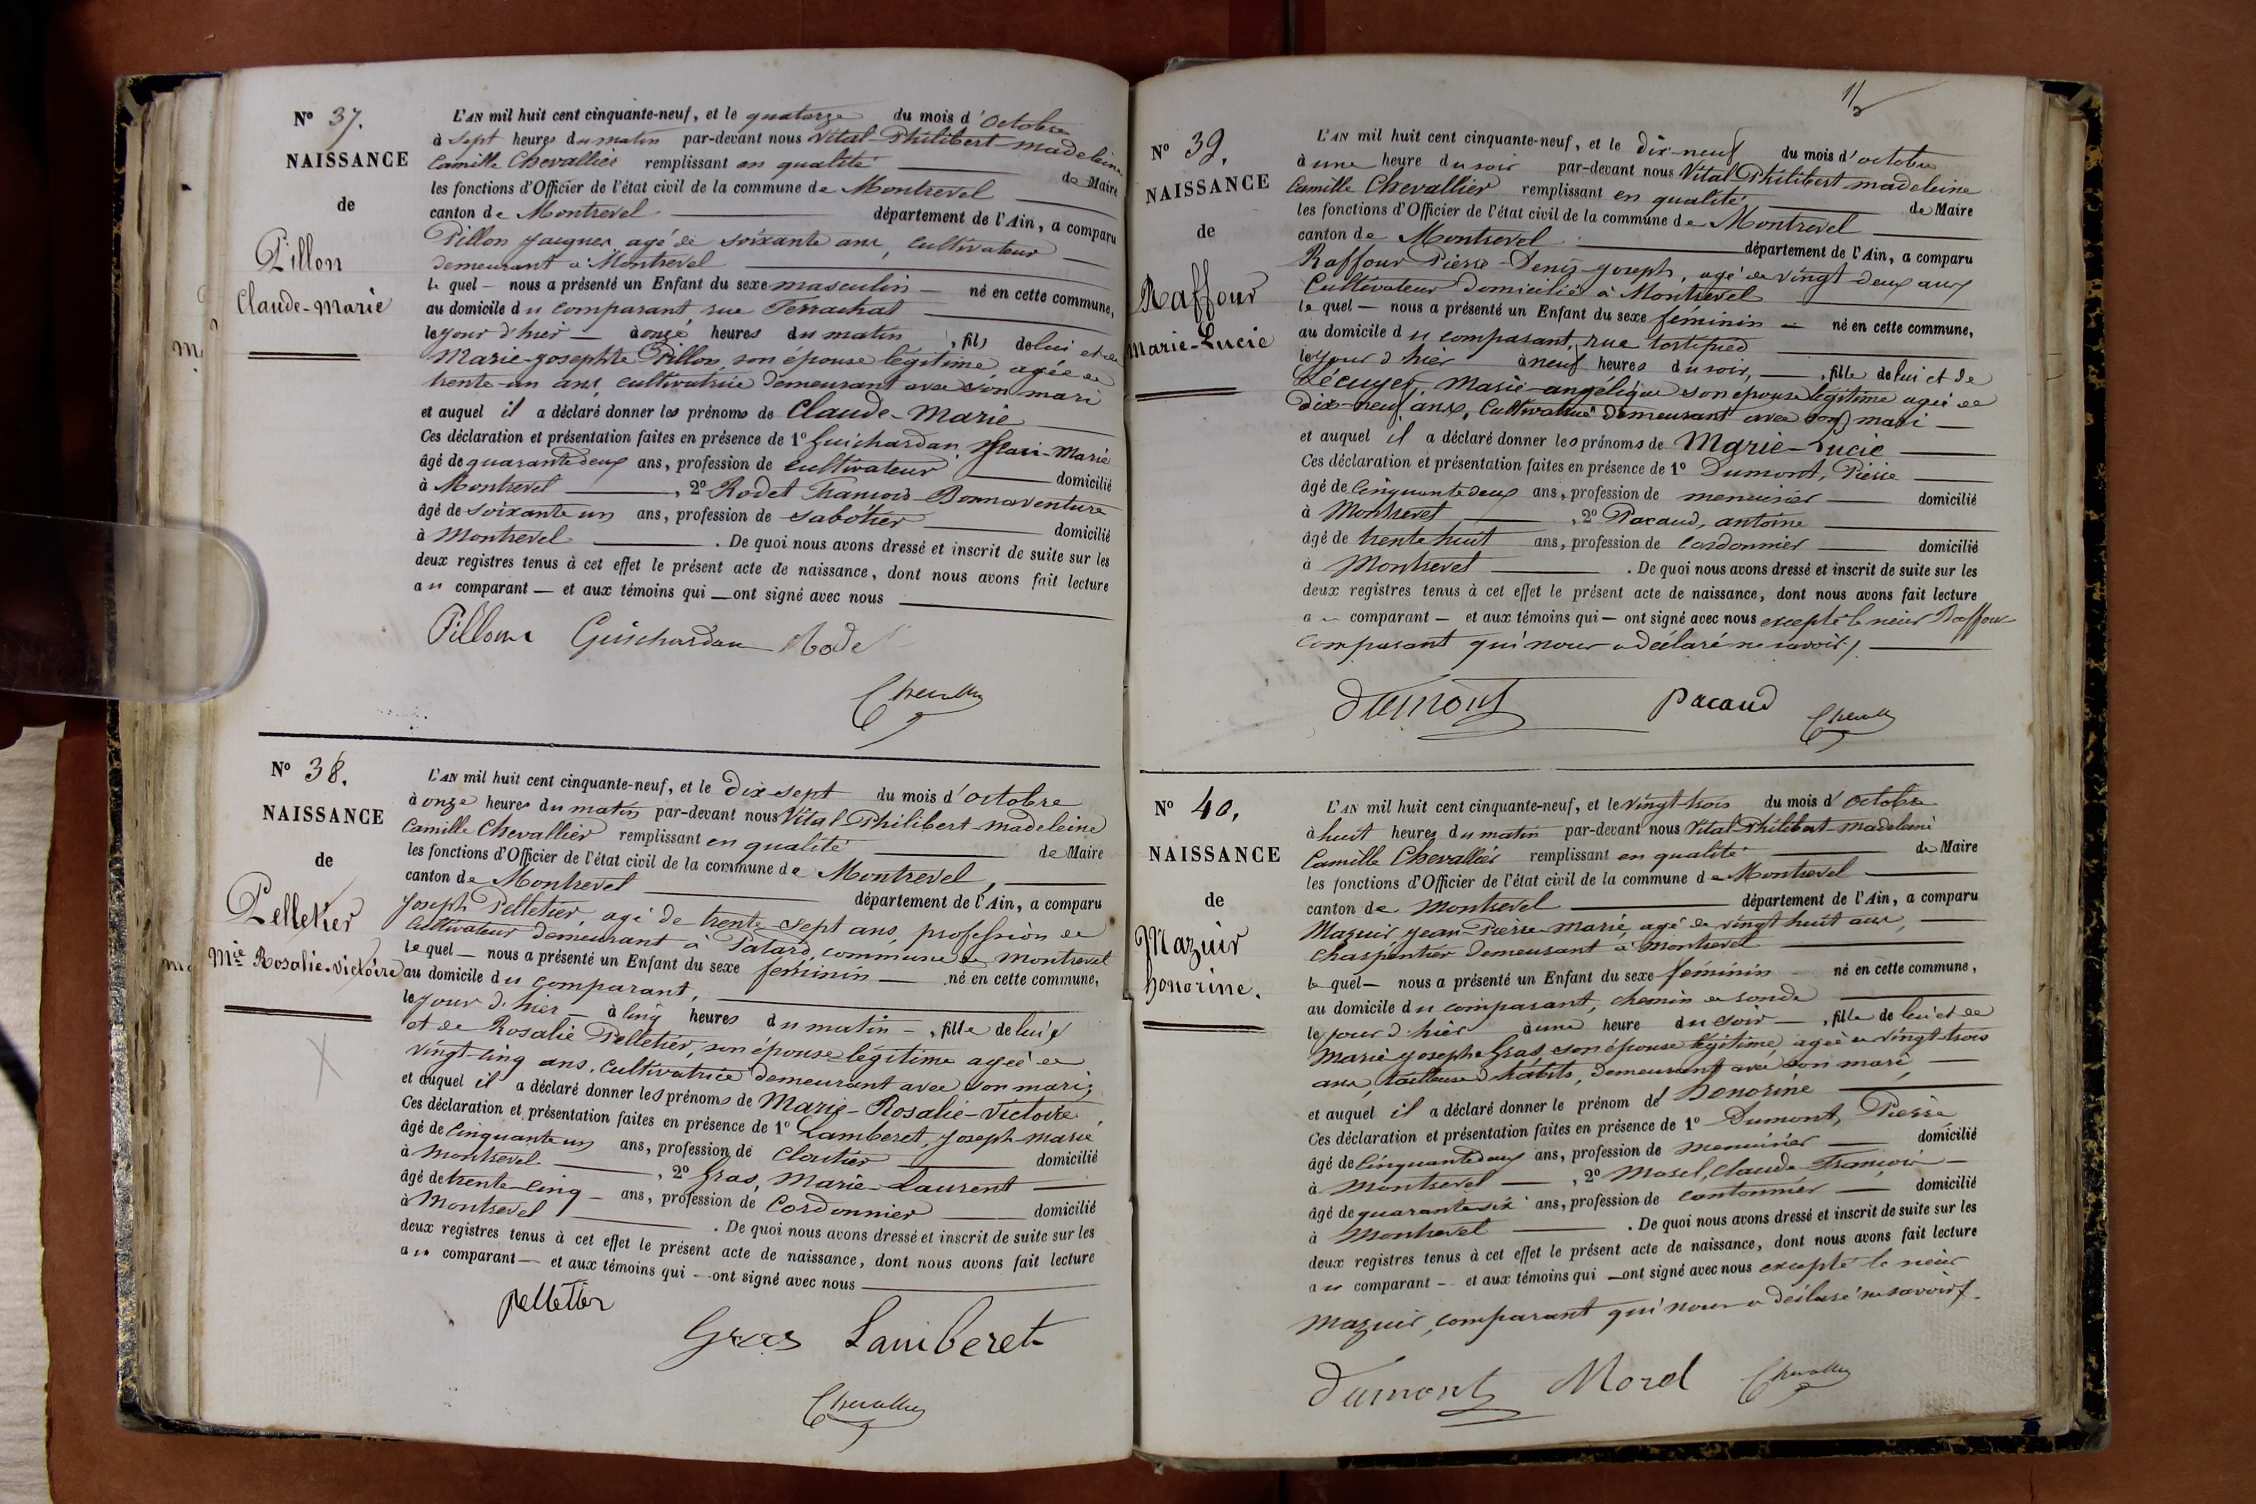 N° 37.
NAISSANCE
de
Pillon
Claude-Marie
L'AN mil huit cent cinquante-neuf, et le quatorze du mois d'Octobre
à sept heures du matin par-devant nous Vital-Philibert-madeleine
Camille Chevallier remplissant en qualité de Maire
les fonctions d'Officier de l'état civil de la commune de Montrevel
canton de Montrevel département de l'Ain, a comparu
Pillon Jacques, agé de soixante ans, cultivateur
demeurant a Montrevel
le quel — nous a présenté un Enfant du sexe masculin — né en cette commune,
au domicile du comparant rue Terrachat
le jour d'hier — à onze heures du matin, fils de lui et de
Marie-josephte Pillon, son épouse légitime agée de
trente-un ans cultivatrice demeurant avec son mari
et auquel il a déclaré donner les prénoms de Claude-Marie
Ces déclaration et présentation faites en présence de 1° Guichardan, Jean-Marie
âgé de quarante deux ans, profession de cultivateur domicilié
à Montrevel, 2° Rodet François-Bonnaventure
âgé de soixante un ans, profession de sabotier domicilié
à Montrevel. De quoi nous avons dressé et inscrit de suite sur les
deux registres tenus à cet effet le présent acte de naissance, dont nous avons fait lecture
au comparant — et aux témoins qui — ont signé avec nous
Pillon Guichardan Rodet
Chevallier
N° 38.
NAISSANCE
de
Pelletier
Mie Rosalie-Victoire
L'AN mil huit cent cinquante-neuf, et le Dix sept du mois d'Octobre
à onze heures du matin par-devant nous Vital-Philibert-madeleine
Camille Chevallier remplissant en qualité de Maire
les fonctions d'Officier de l'état civil de la commune de Montrevel,
canton de Montrevel département de l'Ain, a comparu
Joseph Pelletier, agé de trente-sept ans, profession de
Cultivateur demeurant à Patard, commune de Montrevel
le quel — nous a présenté un Enfant du sexe feminin — né en cette commune,
au domicile du comparant,
le jour d'hier — à cinq heures du matin —, fille de lui
et de Rosalie Pelletier, son épouse légitime agée de
vingt-cinq ans, cultivatrice demeurant avec son mari,
et auquel il a déclaré donner les prénoms de Marie-Rosalie-Victoire
Ces déclaration et présentation faites en présence de 1° Lamberet, Joseph-Marie
âgé de cinquante un ans, profession de cloutier domicilié
à Montrevel, 2° Gras, Marie-Laurent
âgé de trente-cinq — ans, profession de Cordonnier domicilié
à Montrevel. De quoi nous avons dressé et inscrit de suite sur les
deux registres tenus à cet effet le présent acte de naissance, dont nous avons fait lecture
au comparant — et aux témoins qui — ont signé avec nous
pelletier
Gras Lamberet
Chevallier
N° 39.
NAISSANCE
de
Raffour
Marie-Lucie
L'AN mil huit cent cinquante-neuf, et le dix-neuf du mois d'octobre
à une heure du soir par-devant nous Vital-Philibert-madeleine
Camille Chevallier remplissant en qualité de Maire
les fonctions d'Officier de l'état civil de la commune de Montrevel
canton de Montrevel département de l'Ain, a comparu
Raffour Pierre-Denis-joseph, agé de vingt deux ans
Cultivateur domicilié à Montrevel
le quel — nous a présenté un Enfant du sexe féminin — né en cette commune,
au domicile du comparant, rue tortipied
le jour d'hier à neuf heures du soir, —, fille de lui et de
Lécuyer, Marie-angélique son épouse légitime agée de
dix-neuf ans, Cultivatrice demeurant avec son mari —
et auquel il a déclaré donner les prénoms de Marie-Lucie
Ces déclaration et présentation faites en présence de 1° Dumont, Pierre
âgé de cinquante deux ans, profession de menuisier domicilié
à Montrevel, 2° Pacaud, antoine
âgé de trente huit ans, profession de cordonnier domicilié
à Montrevel. De quoi nous avons dressé et inscrit de suite sur les
deux registres tenus à cet effet le présent acte de naissance, dont nous avons fait lecture
au comparant — et aux témoins qui — ont signé avec nous excepté le sieur Raffour
Comparant qui nous a déclaré ne savoir
dumont pacaud Chevallier
N° 40.
NAISSANCE
de
Mazuir
honorine.
L'AN mil huit cent cinquante-neuf, et le vingt-trois du mois d'Octobre
à huit heures du matin par-devant nous Vital-Philibert-Madeleine
Camille Chevallier remplissant en qualité de Maire
les fonctions d'Officier de l'état civil de la commune de Montrevel
canton de Montrevel département de l'Ain, a comparu
Mazuir jean-Pierre-Marie, agé de vingt huit ans,
charpentier demeurant à Montrevel
le quel — nous a présenté un Enfant du sexe féminin né en cette commune,
au domicile du comparant, chemin de ronde
le jour d'hier à une heure du soir —, fille de lui et de
Marie-josephe Gras, son épouse légitime, agée de vingt-trois
ans, tailleuse d'habits, demeurant avec son mari, —
et auquel il a déclaré donner le prénom de honorine
Ces déclaration et présentation faites en présence de 1° Dumont, Pierre
âgé de cinquante deux ans, profession de menuisier domicilié
à Montrevel, 2° Morel, Claude-François —
âgé de quarante six ans, profession de cantonnier domicilié
à Montrevel. De quoi nous avons dressé et inscrit de suite sur les
deux registres tenus à cet effet le présent acte de naissance, dont nous avons fait lecture
au comparant — et aux témoins qui — ont signé avec nous excepté le sieur
Mazuir, comparant qui nous a déclaré ne savoir
dumont Morel Chevallier